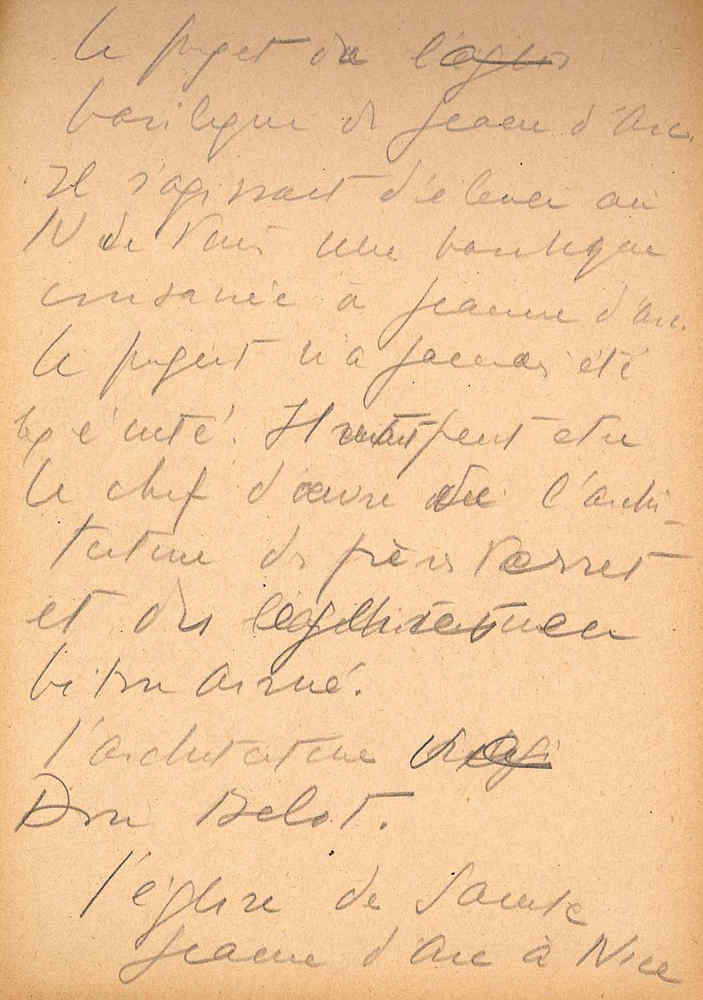 Le projet de l'église
basilique de Jeanne d'Arc.
Il s'agissait d'élever au
N de Paris une basilique
consacrée à Jeanne d'Arc.
Le projet n'a jamais été
exécuté. Il peut etre
le chef d'œuvre de l'archi-
tecture des frères Perret
et des
béton armé.
l'architecture
Dom Bellot.
l'église de Sainte
Jeanne d'Arc à Nice